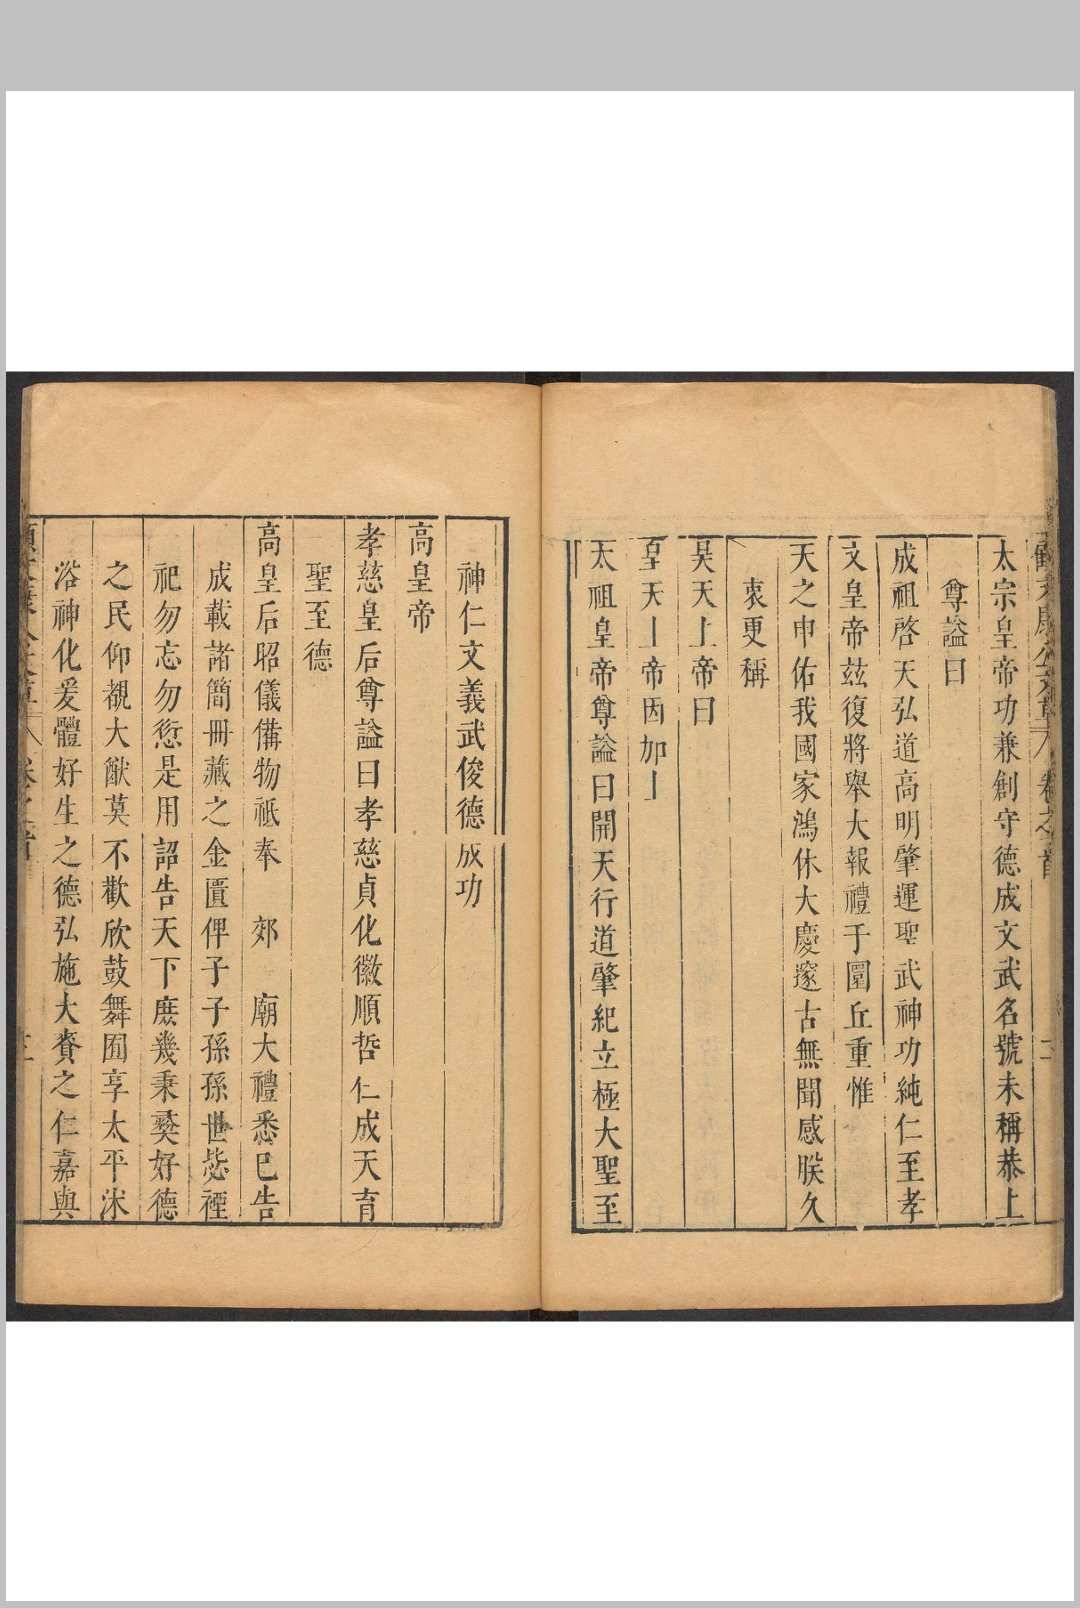 太宗皇帝功兼創守德成文武名號未稱恭上
尊謚曰
成祖啓天弘道高明肇運聖武神功純仁至孝
文皇帝兹復將舉大報禮于圜丘重惟
天之申佑我國家鴻休大慶邃古無聞感朕久
衷更稱
昊天上帝曰
皇天上帝因加上
太祖皇帝尊謚曰開天行道肇紀立極大聖至
神仁文義武俊德成功
高皇帝
孝慈皇后尊謚曰孝慈貞化徽順哲仁成天育
聖至德
高皇后昭儀備物祗奉 郊 廟大禮悉已告
成載諸簡冊藏之金匱俾子子孫孫世毖禋
祀勿忘勿愆是用詔告天下庶幾秉彝好德
之民仰覩大猷莫不歡欣鼓舞囿享太平沐
浴神化爰體好生之德弘施大賚之仁嘉與